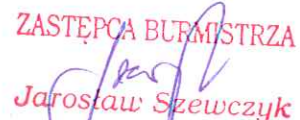 ZASTĘPCA BURMISTRZA
Jarosław Szewczyk